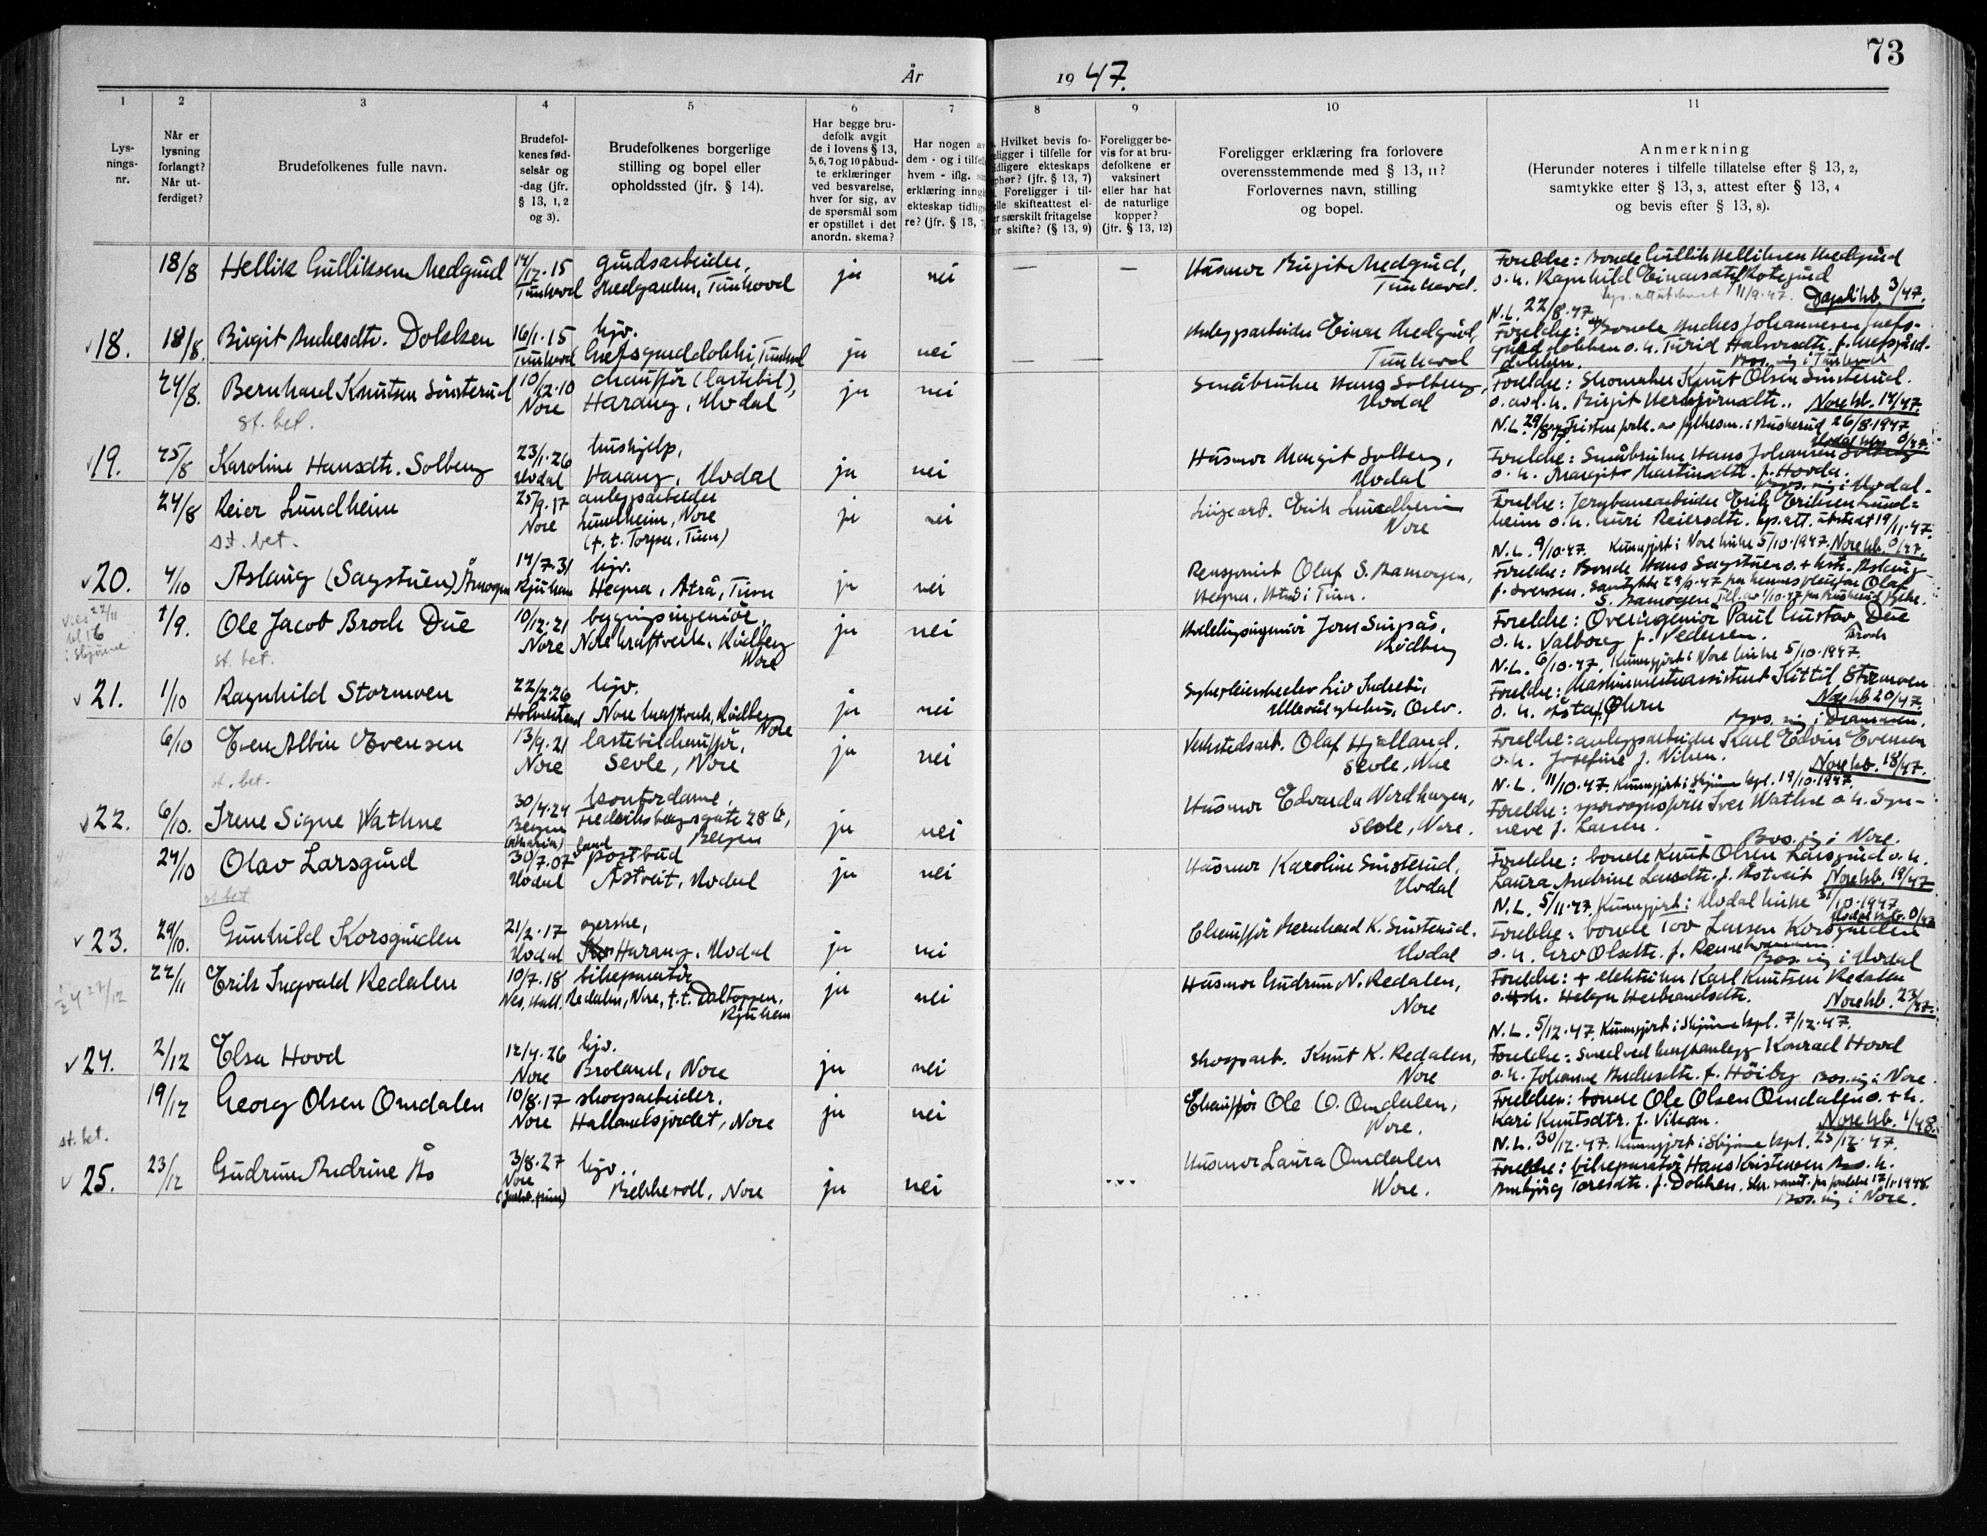 73
År 1947.
1 2 3 4 5 6 7 8 9 10 11
Lys-
nings-
nr.
Når er
lysning
forlangt?
Når ut-
ferdiget?
Brudefolkenes fulle navn.
Brudefol-
kenes fød-
selsår og
-dag (jfr.
§ 13, 1, 2
og 3).
Brudefolkenes borgerlige
stilling og bopel eller
opholdssted (jfr. § 14).
Har begge bru-
defolk avgit
de i lovens § 13,
5, 6, 7 og 10 påbud-
te erklæringer
ved besvarelse,
hver for sig, av
de spørsmål som
er opstillet i det
anordn. skema?
Har nogen av
dem - og i tilfelle
hvem - iflg.
erklæring inngå
ekteskap tidlig
re? (jfr. § 13,
Hvilket bevis fo-
religger i tilfelle for
idligere ekteskaps
phør? (jfr. § 13, 7)
Foreligger i til-
elle skifteattest el-
er særskilt fritagelse
or skifte? (§ 13, 9)
Foreligger be-
vis for at bru-
defolkene er
vaksinert
eller har hat
de naturlige
kopper?
(jfr. § 13, 12)
Foreligger erklæring fra forlovere
overensstemmende med § 13, 11?
Forlovernes navn, stilling
og bopel.
Anmerkning
(Herunder noteres i tilfelle tillatelse efter § 13, 2,
samtykke efter § 13, 3, attest efter § 13, 4
og bevis efter § 13, 8).
18/8 Hellik Gulliksen Medgård 14/12.15 gårdsarbeider, ja nei — — Husmor Birgit Medgård, Foreldre: Bonde Gullik Helliksen Medgård
Tunhovd Medgarden, Tunhovd Tunhovd. o. h. Ragnhild Einarsdtr Rotegård
11/9.47. Dagali kb. 3/47.
N.L. 22/8.47.
18. 18/8. Birgit Andresdtr. Dokken 16/1.15 hjv. ja nei — — Anleggsarbeider Einar Medgård, Foreldre: Bonde Andres Johannesen
Tunhovd Tunhovd Tunhovd o. h. Turid Halvorsdtr. f.
Bos. sig i Tunhovd
24/8. Bernhard Knutsen Sønsterud 10/12.10 chauffør (lastebil), ja nei Småbruker Hans Solberg, Foreldre: Skomaker Knut Olsen Sønsterud.
st. bet. Nore Harang, Uvdal Uvdal o. avd. h. Birgit Herbjørnsdtr.. Nore kb. 14/47.
N.L. 29/8.47 26/8.1947
19. 25/8 Karoline Hansdtr. Solberg 23/1.26 hushjelp, ja nei Husmor Margit Solberg, Foreldre: Småbruker Hans Johansen Solberg
Uvdal Harang, Uvdal Uvdal o. h. Margit Martinsdtr. f. Hovda.
Bos. sig i Uvdal.
24/8 Reier Lundheim 25/9.17 anleggsarbeider ja nei Erik Lundheim Foreldre: Jernbanearbeider Erik Eriksen Lund-
st. bet. Nore Lundheim, Nore Nore heim o. h. Guri Reiersdtr. 19/11.47.
(t. t. Torpa, Tinn)
N.L. 9/10.47. Kunngjort i Nore kirke 5/10.1947. Nore kb.
20. 4/10 Aslaug (Sagstuen) Åmogen 14/7.31 hjv. ja nei Pensjonist Olaf S. Aamogen, Foreldre: Bonde Hans Sagstuen o. + h.
Rjukan Hegna, Atrå, Tinn Hegna, Atrå i Tinn. f. Iversen. Samtykke 29/9.47 Olaf
S. Aamogen.
Vies 22/11
kl. 16
i Skjønne
1/9. Ole Jacob Broch Due 10/12.21 bygningsingeniør, ja nei Avdelingsingeniør Jorn Singsås, Foreldre: Overingeniør Paul Gustav Due
st. bet. Nore Nore kraftverk, Rødberg Rødberg o. h. Valborg f. Pedersen. Broch
Nore N.L. 6/10.47. Kunngjort i Nore kirke 5/10.1947.
21. 1/10 Ragnhild Stormoen 22/2.26 hjv. ja nei Sykepleierskeelev Liv Foreldre: Maskinmesterassistent Kittil Stormoen
Holmestrand Nore kraftverk, Rødberg Ullevål sykehus, Oslo. o. h. Åsta f. Øhrn Nore kb 20/47.
Nore Bos. sig i Drammen.
6/10 Even Albin Evensen 13/9.21 lastebilchauffør, ja nei Verkstedsarb. Olaf Hjælland. Foreldre: anleggsarbeider Karl Edvin Evensen
st. bet. Nore Sevle, Nore Sevle, Nore o. h. Josefine f. Nore kb. 18/47.
N.L. 11/10.47. Kunngjort i Skjønne kpl. 19/10.1947.
22. 6/10. Irene Signe Wathne 30/4.24 kontordame, ja nei Husmor Edvarda Nordhagen, Foreldre: Iver Wathne o. h. Syn-
Bergen Fredriksbergsgate 28 b, Sevle, Nore. neve f. Larsen.
Bergen Bos. sig i Nore.
24/10 Olav Larsgård 30/7.07 postbud ja nei Husmor Karoline Sønsterud, Foreldre: bonde Knut Olsen Larsgård o. h.
st. bet Uvdal Åstveit, Uvdal Uvdal Laura Andrine Larsdtr. f. Åstveit Nore kb. 19/47
N.L. 5/11.47. Kunngjort i Uvdal kirke 31/10.1947
23. 29/10. Gunhild Korsgården 21/2.17 syerske, ja nei Chauffør Bernhard K. Sønsterud. Foreldre: bonde Tov Larsen Korsgården
Uvdal Harang, Uvdal Uvdal o. h. Gro Olsdtr. f.
Bos. sig i Uvdal
22/11 Erik Ingvald Redalen 10/7.18 bilreparatør ja nei Husmor Gudrun N. Redalen, Foreldre: + elektriker Karl Knutsen Redalen
Nes, Hall. Redalen, Nore, t. t. Daltoppen, Nore o. h. Helga Herbrandsdtr. Nore kb. 23/47.
Rjukan N.L. 5/12.47. Kunngjort i Skjønne kpl. 7/12.47.
24. 2/12 Elsa Hovd 12/4.26 hjv. ja nei Skogsarb. Knut K. Redalen, Foreldre: Smed ved kraftanlegg Konrad Hovd
Nore Broland, Nore Nore o. h. Johanne Andersdtr. f. Höiby Bos. sig i Nore.
19/12 Georg Olsen Omdalen 10/8.17 skogsarbeider. ja nei Chauffør Ole O. Omdalen, Foreldre: bonde Ole Olsen Omdalen o. + h.
st. bet. Nore Hallandsjordet, Nore Nore. Kari Knutsdtr. f. Vikan. Nore kb. 1/48.
N.L. 30/12.47. Kunngjort i Skjønne kpl. 25/12.47.
25. 23/12 Gudrun Andrine Ås 3/8.27 hjv.. ja nei Husmor Laura Omdalen Foreldre: bilreparatør Hans Kristensen Ås o. h.
Nore Bekkevoll, Nore Nore. Ambjørg Toresdtr. f. Dokken. 12/1.1948.
Bos. sig i Nore.